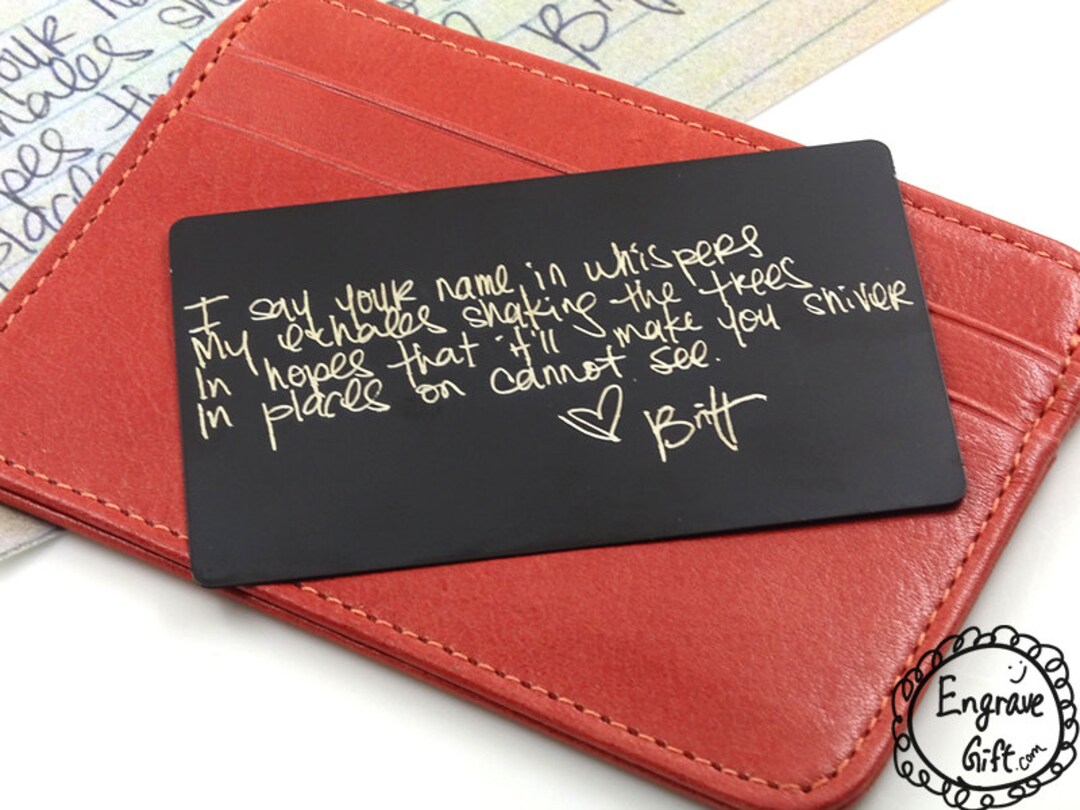 your
hales sh
pes th
places
Britt
I say your name in whispers
My exhales shaking the trees
In hopes that it'll make you shiver
In places on cannot see.
Britt
Engrave
Gift.com